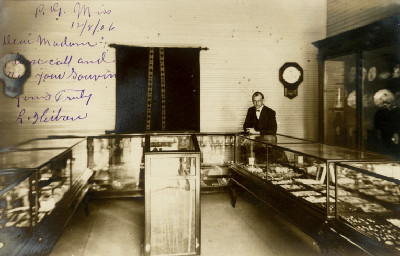 P.G. Miss
12/8/06
Dear Madam:
Please call and
See your Souvenir
Yours Truly
L. Heiben